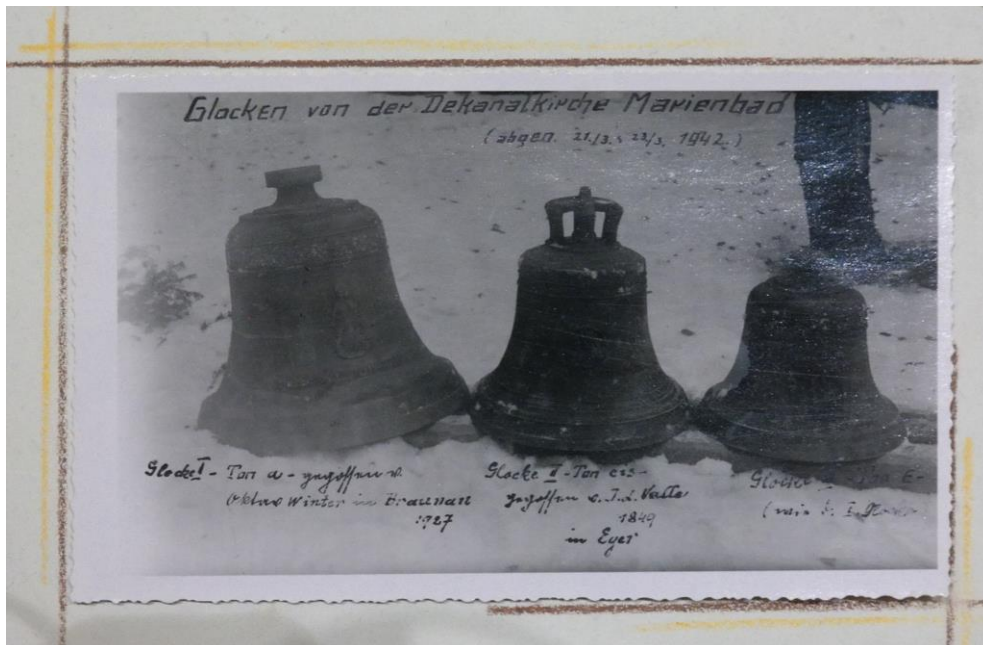 Glocken von der Dekanatkirche Marienbad
(abgen. 21./3. 22/3. 1942.)
Glocke I - Ton a - gegossen v.
Oktav Winter in Braunau
1927
Glocke II - Ton cis -
gegossen v. J. d. Valle
1849
in Eger
Glocke - Ton E -
(wie b. I. Glocke